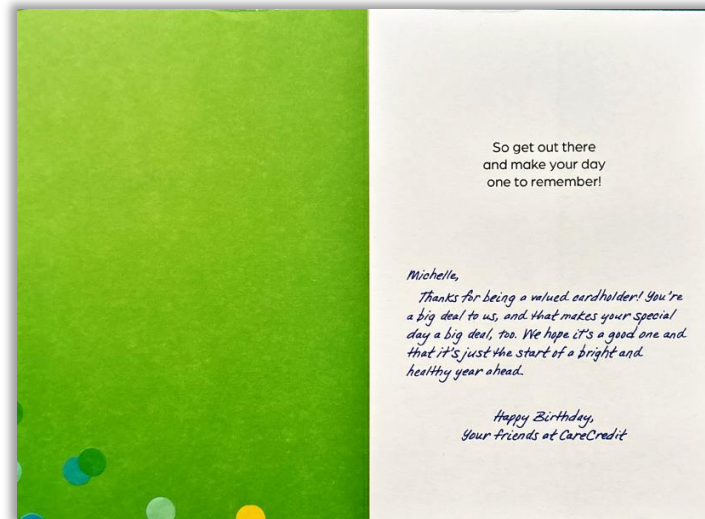 So get out there
and make your day
one to remember!
Michelle,
Thanks for being a valued cardholder! You're
a big deal to us, and that makes your special
day a big deal, too. We hope it's a good one and
that it's just the start of a bright and
healthy year ahead.
Happy Birthday,
Your friends at CareCredit